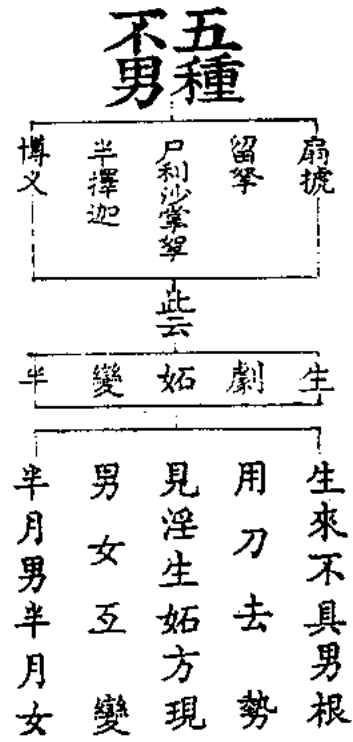 五種
不男
扇搋
留拏
尸利沙掌拏
半擇迦
博义
此云
生
劇
妬
變
半
生來不具男根
用刀去勢
見淫生妬方現
男女互變
半月男半月女